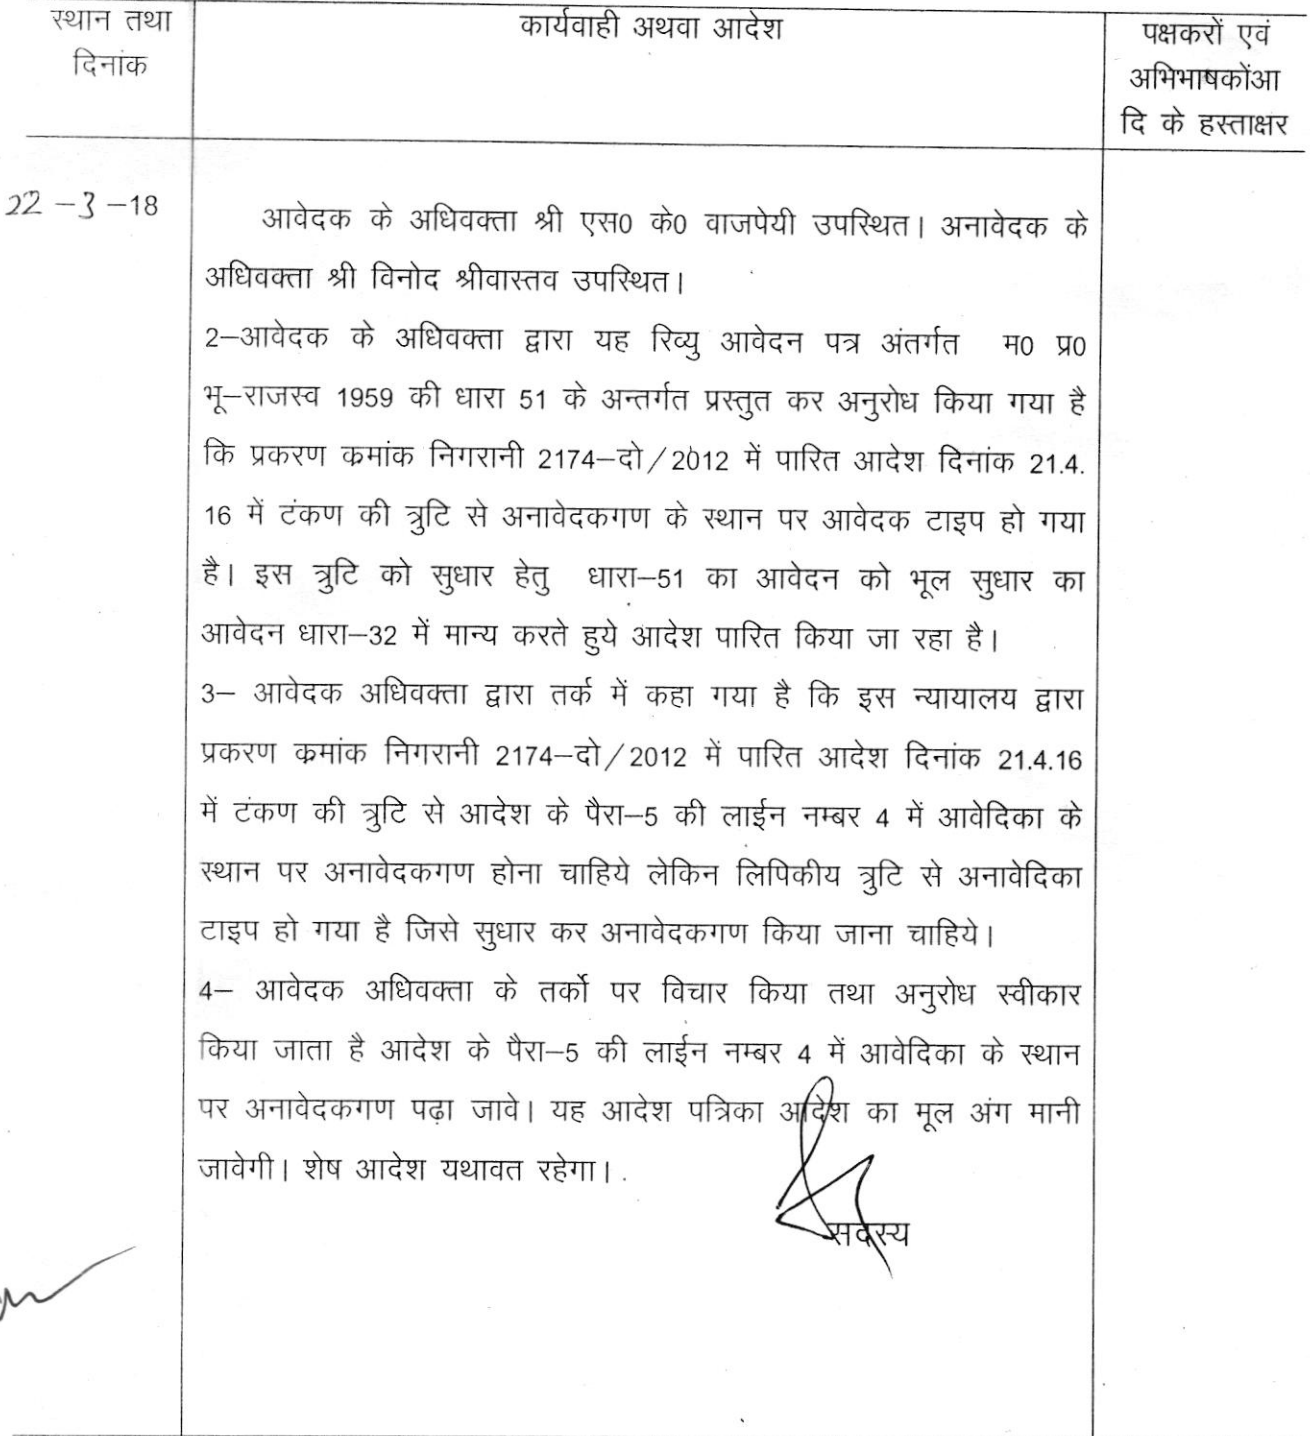 स्थान तथा
दिनांक
कार्यवाही अथवा आदेश
पक्षकरों एवं
अभिभाषकोंआ
दि के हस्ताक्षर
22 –3 –18
आवेदक के अधिवक्ता श्री एस0 के0 वाजपेयी उपस्थित। अनावेदक के
अधिवक्ता श्री विनोद श्रीवास्तव उपस्थित।
2–आवेदक के अधिवक्ता द्वारा यह रिव्यु आवेदन पत्र अंतर्गत म0 प्र0
भू–राजस्व 1959 की धारा 51 के अन्तर्गत प्रस्तुत कर अनुरोध किया गया है
कि प्रकरण कमांक निगरानी 2174–दो/2012 में पारित आदेश दिनांक 21.4.
16 में टंकण की त्रुटि से अनावेदकगण के स्थान पर आवेदक टाइप हो गया
है। इस त्रुटि को सुधार हेतु धारा–51 का आवेदन को भूल सुधार का
आवेदन धारा–32 में मान्य करते हुये आदेश पारित किया जा रहा है।
3– आवेदक अधिवक्ता द्वारा तर्क में कहा गया है कि इस न्यायालय द्वारा
प्रकरण कमांक निगरानी 2174–दो/2012 में पारित आदेश दिनांक 21.4.16
में टंकण की त्रुटि से आदेश के पैरा–5 की लाईन नम्बर 4 में आवेदिका के
स्थान पर अनावेदकगण होना चाहिये लेकिन लिपिकीय त्रुटि से अनावेदिका
टाइप हो गया है जिसे सुधार कर अनावेदकगण किया जाना चाहिये।
4– आवेदक अधिवक्ता के तर्को पर विचार किया तथा अनुरोध स्वीकार
किया जाता है आदेश के पैरा–5 की लाईन नम्बर 4 में आवेदिका के स्थान
पर अनावेदकगण पढ़ा जावे। यह आदेश पत्रिका आदेश का मूल अंग मानी
जावेगी। शेष आदेश यथावत रहेगा।
सदस्य